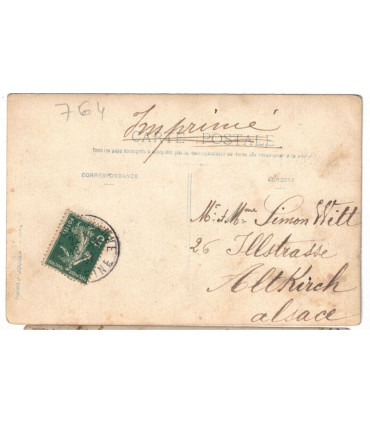 764
Imprimé
CARTE POSTALE
CORRESPONDANCE
ADRESSE
Mr & Mme Simon Witt
26 Illstrasse
Altkirch
alsace